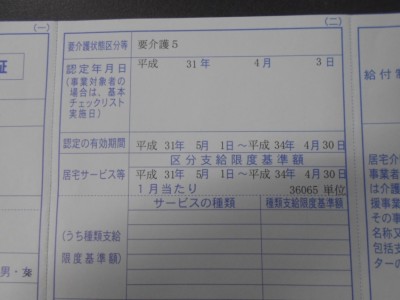 (一)
(二)
証
要介護状態区分等
要介護5
認定年月日
(事業対象者の
場合は、基本
チェックリスト
実施日)
平成 31年 4月 3日
認定の有効期間
平成 31年 5月 1日～平成 34年 4月30日
区分支給限度基準額
居宅サービス等
平成 31年 5月 1日～平成 34年 4月30日
1月当たり
36065 単位
サービスの種類
種類支給限度基準額
(うち種類支給
限度基準額)
男・女
給付制
居宅介
事業者
は介護
援事業
その事
名称又
包括支
ターの